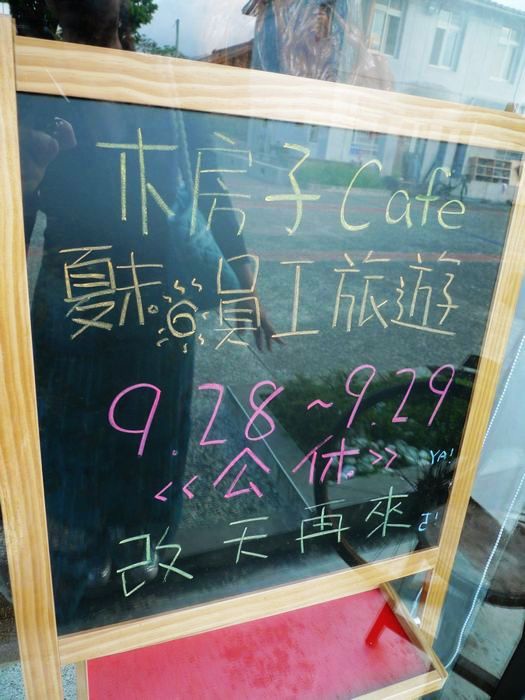 木房子Cafe
夏末員工旅遊
9.28~9.29
<<公休>> YA!
改天再來